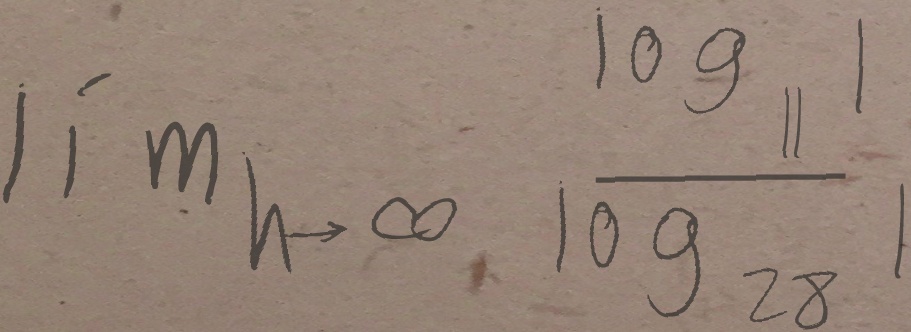 \lim_{h \to \infty} \frac{\log_{11} 1}{\log_{28} 1}